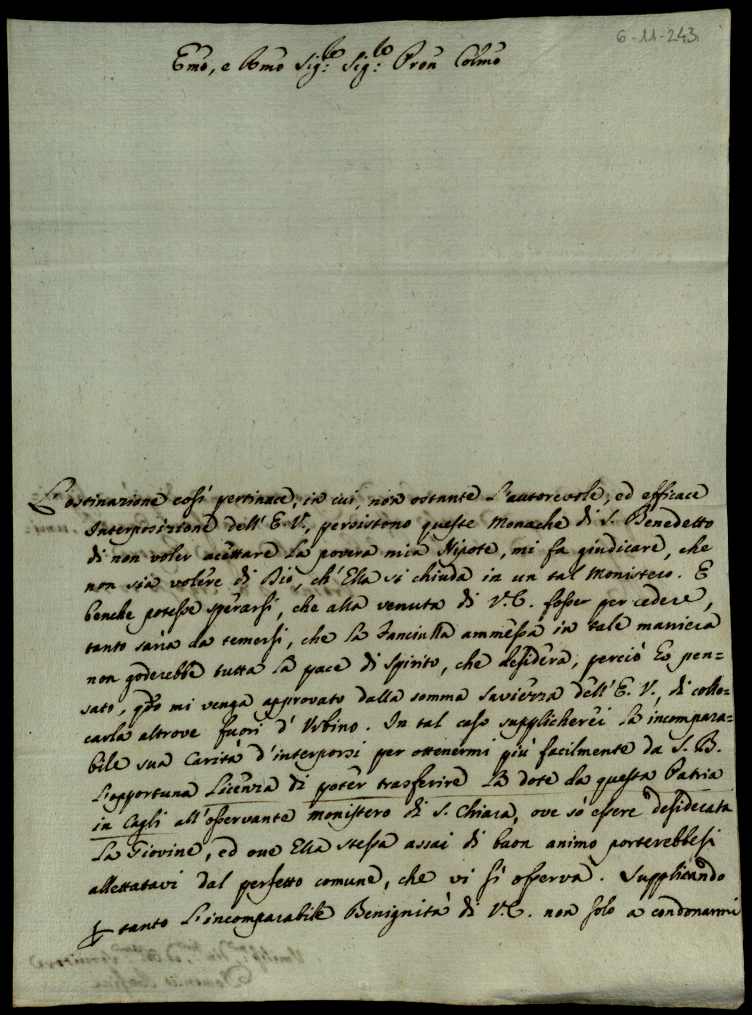 6-11-243
Emo, e Rmo Sig:re Sig:re Pron Colmo
L'ostinazione così pertinace, in cui, non ostante l'autorevole, ed efficace
Interposizione dell' E.V., persistono queste Monache di S. Benedetto
di non voler accettare la povera mia Nipote, mi fa giudicare, che
non sia volere di Dio, ch' Ella si chiuda in un tal Monistero. E
benche potesse sperarsi, che alla venuta di V.E. fosser per cedere,
tanto saria da temersi, che la Fanciulla ammessa in tale maniera
non goderebbe tutta la pace di spirito, che desidera, perciò ho pen=
sato, qdo mi venga approvato dalla somma saviezza dell' E.V., di collo=
carla altrove fuori d' Urbino. In tal caso supplicherei la incompara=
bile sua Carità d'interporsi per ottenermi più facilmente da S.B.
l'opportuna Licenza di poter trasferire la dote da questa Patria
in Cagli all'osservante Monistero di S. Chiara, ove sò essere desiderata
la Giovine, ed ove Ella stessa assai di buon animo porterebbesi
allettatavi dal perfetto comune, che vi si osserva. Supplicando
tanto l'incomparabile Benignità di V.E. non solo a condonarmi